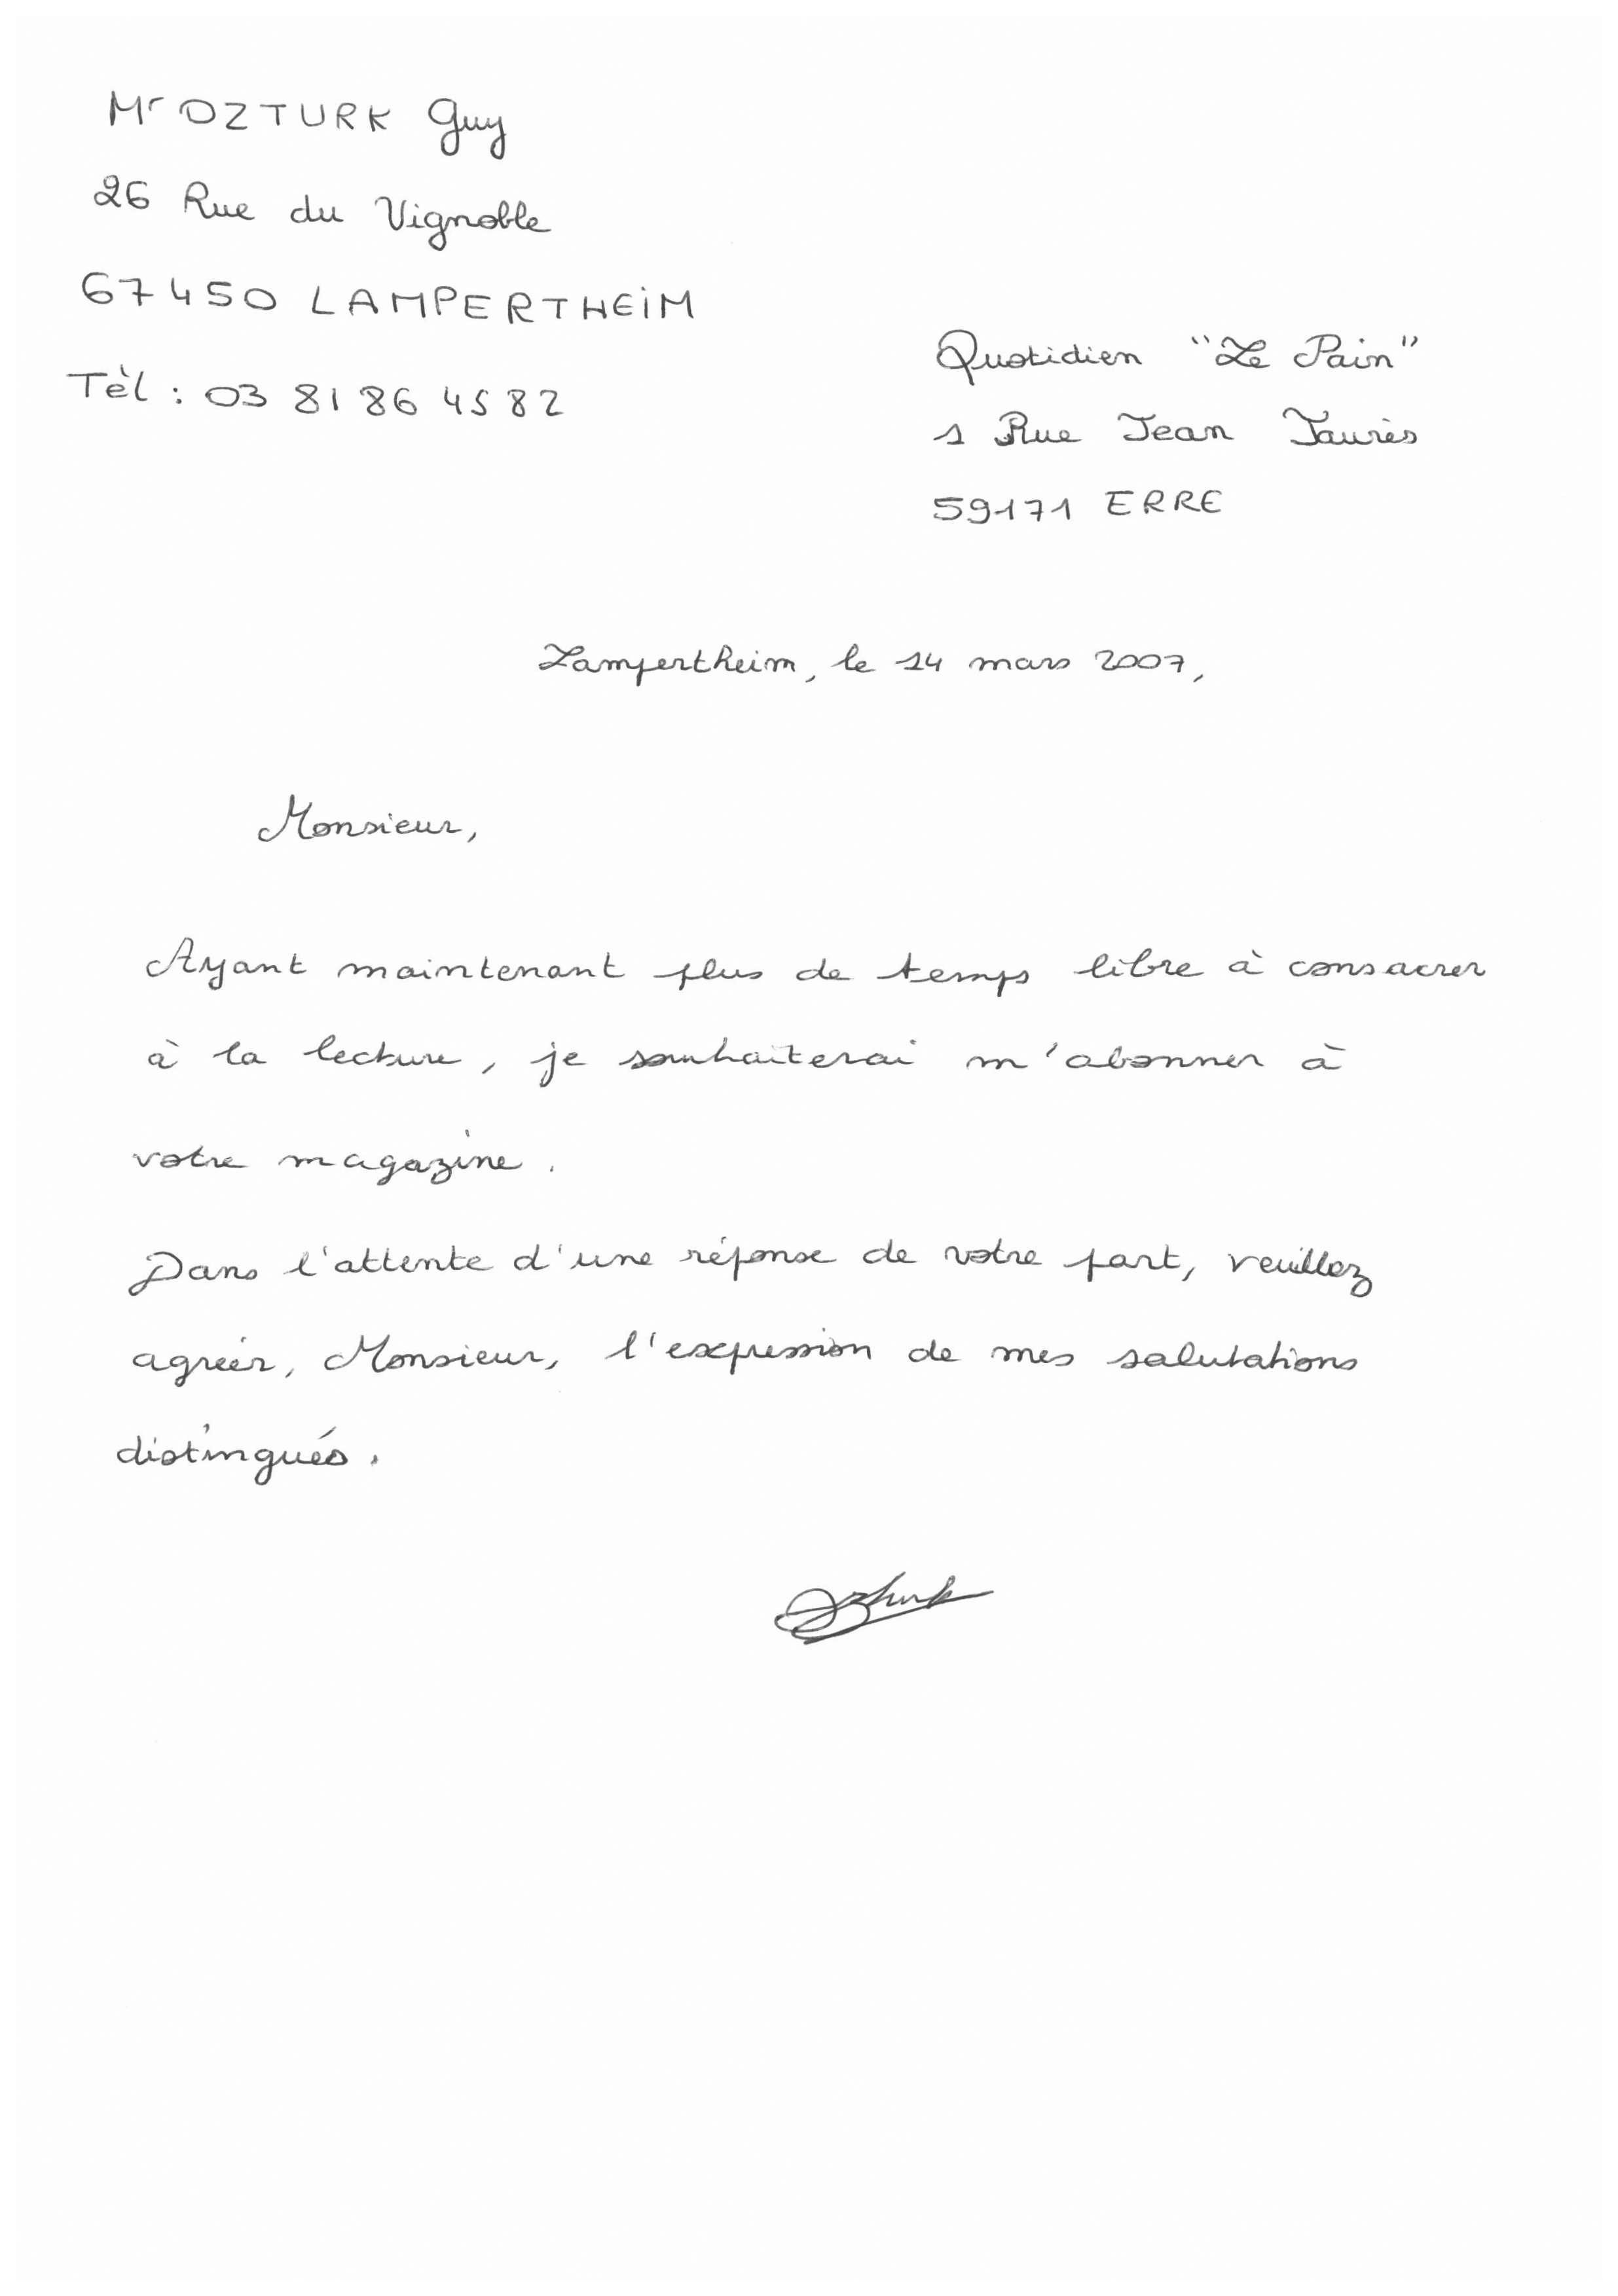 Mr OZTURK Guy
26 Rue du Vignoble
67450 LAMPERTHEIM
Tèl : 03 81 86 45 82
Quotidien "Le Pain"
1 Rue Jean Jaurès
59171 ERRE
Lampertheim, le 14 mars 2007,
Monsieur,
Ayant maintenant plus de temps libre à consacrer
à la lecture, je souhaiterai m'abonner à
votre magazine.
Dans l'attente d'une réponse de votre part, veuillez
agréer, Monsieur, l'expression de mes salutations
distingués.
Ozturk